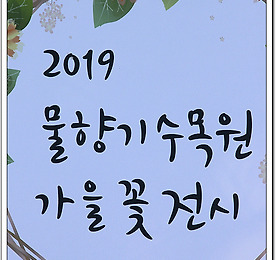 2019
물향기수목원
가을 꽃 전시